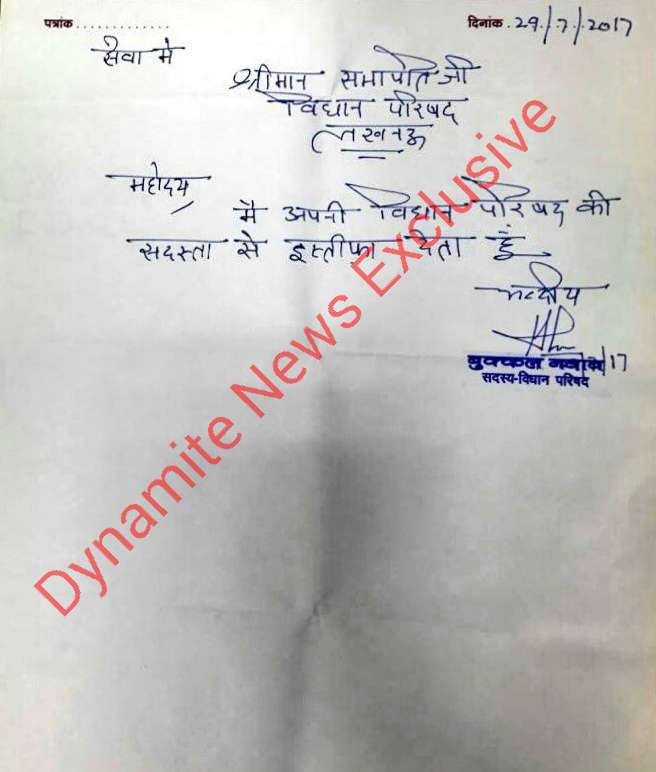 पत्रांक.............
दिनांक.29/7/2017
सेवा मे
श्रीमान सभापति जी
विधान परिषद
लखनऊ
महोदय
मै अपनी विधान परिषद की
सदस्ता से इस्तीफ़ा देता हूं
भवदीय
बुक्कल नवाब
सदस्य-विधान परिषद
Dynamite News Exclusive